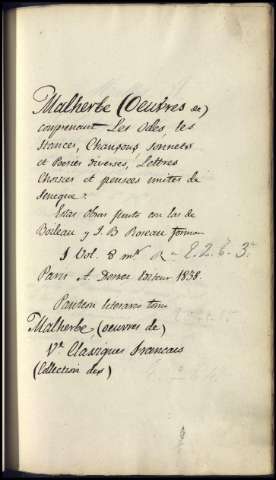 Malherbe (Oeuvres de)
comprenant Les Odes, les
Stances, Chansons sonnets
et Poesies diverses, Lettres
Choisies et pensees imitées de
Seneque.
Estas obras junto con las de
Boileau y J. B. Roseau forman
1 Vol. 8 mʳ R - 2.2.6-3ª
Paris A. Desrez Editeur 1838.
Panteon literario tomo
Malherbe (oeuvres de)
Vᵉ Classiques francais
(Collection des)